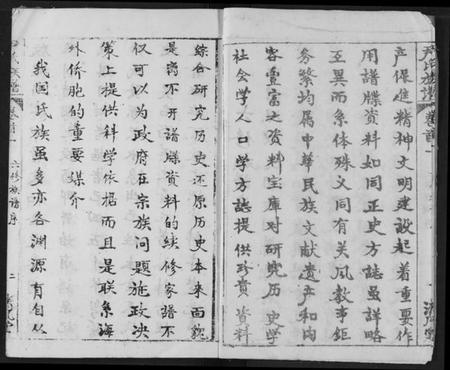 产促进精神文明建设起着重要作
用譜牒资料如同正史方誌虽詳略
互異而系体殊义同有关风教事鉅
务繁均属中華民族文献遗产和内
容豊富之资料宝庫对研究历史学
社会学人口学方誌提供珍貴資料
綜合研究历史还原历史本来面貌
是离不开譜牒資料的续修家譜不
仅可以为政府在宗族问题施政决
策上提供科学依据而且是联系海
外侨胞的重要媒介
我国氏族虽多亦各渊源有自从
卷首
六修族譜序
二